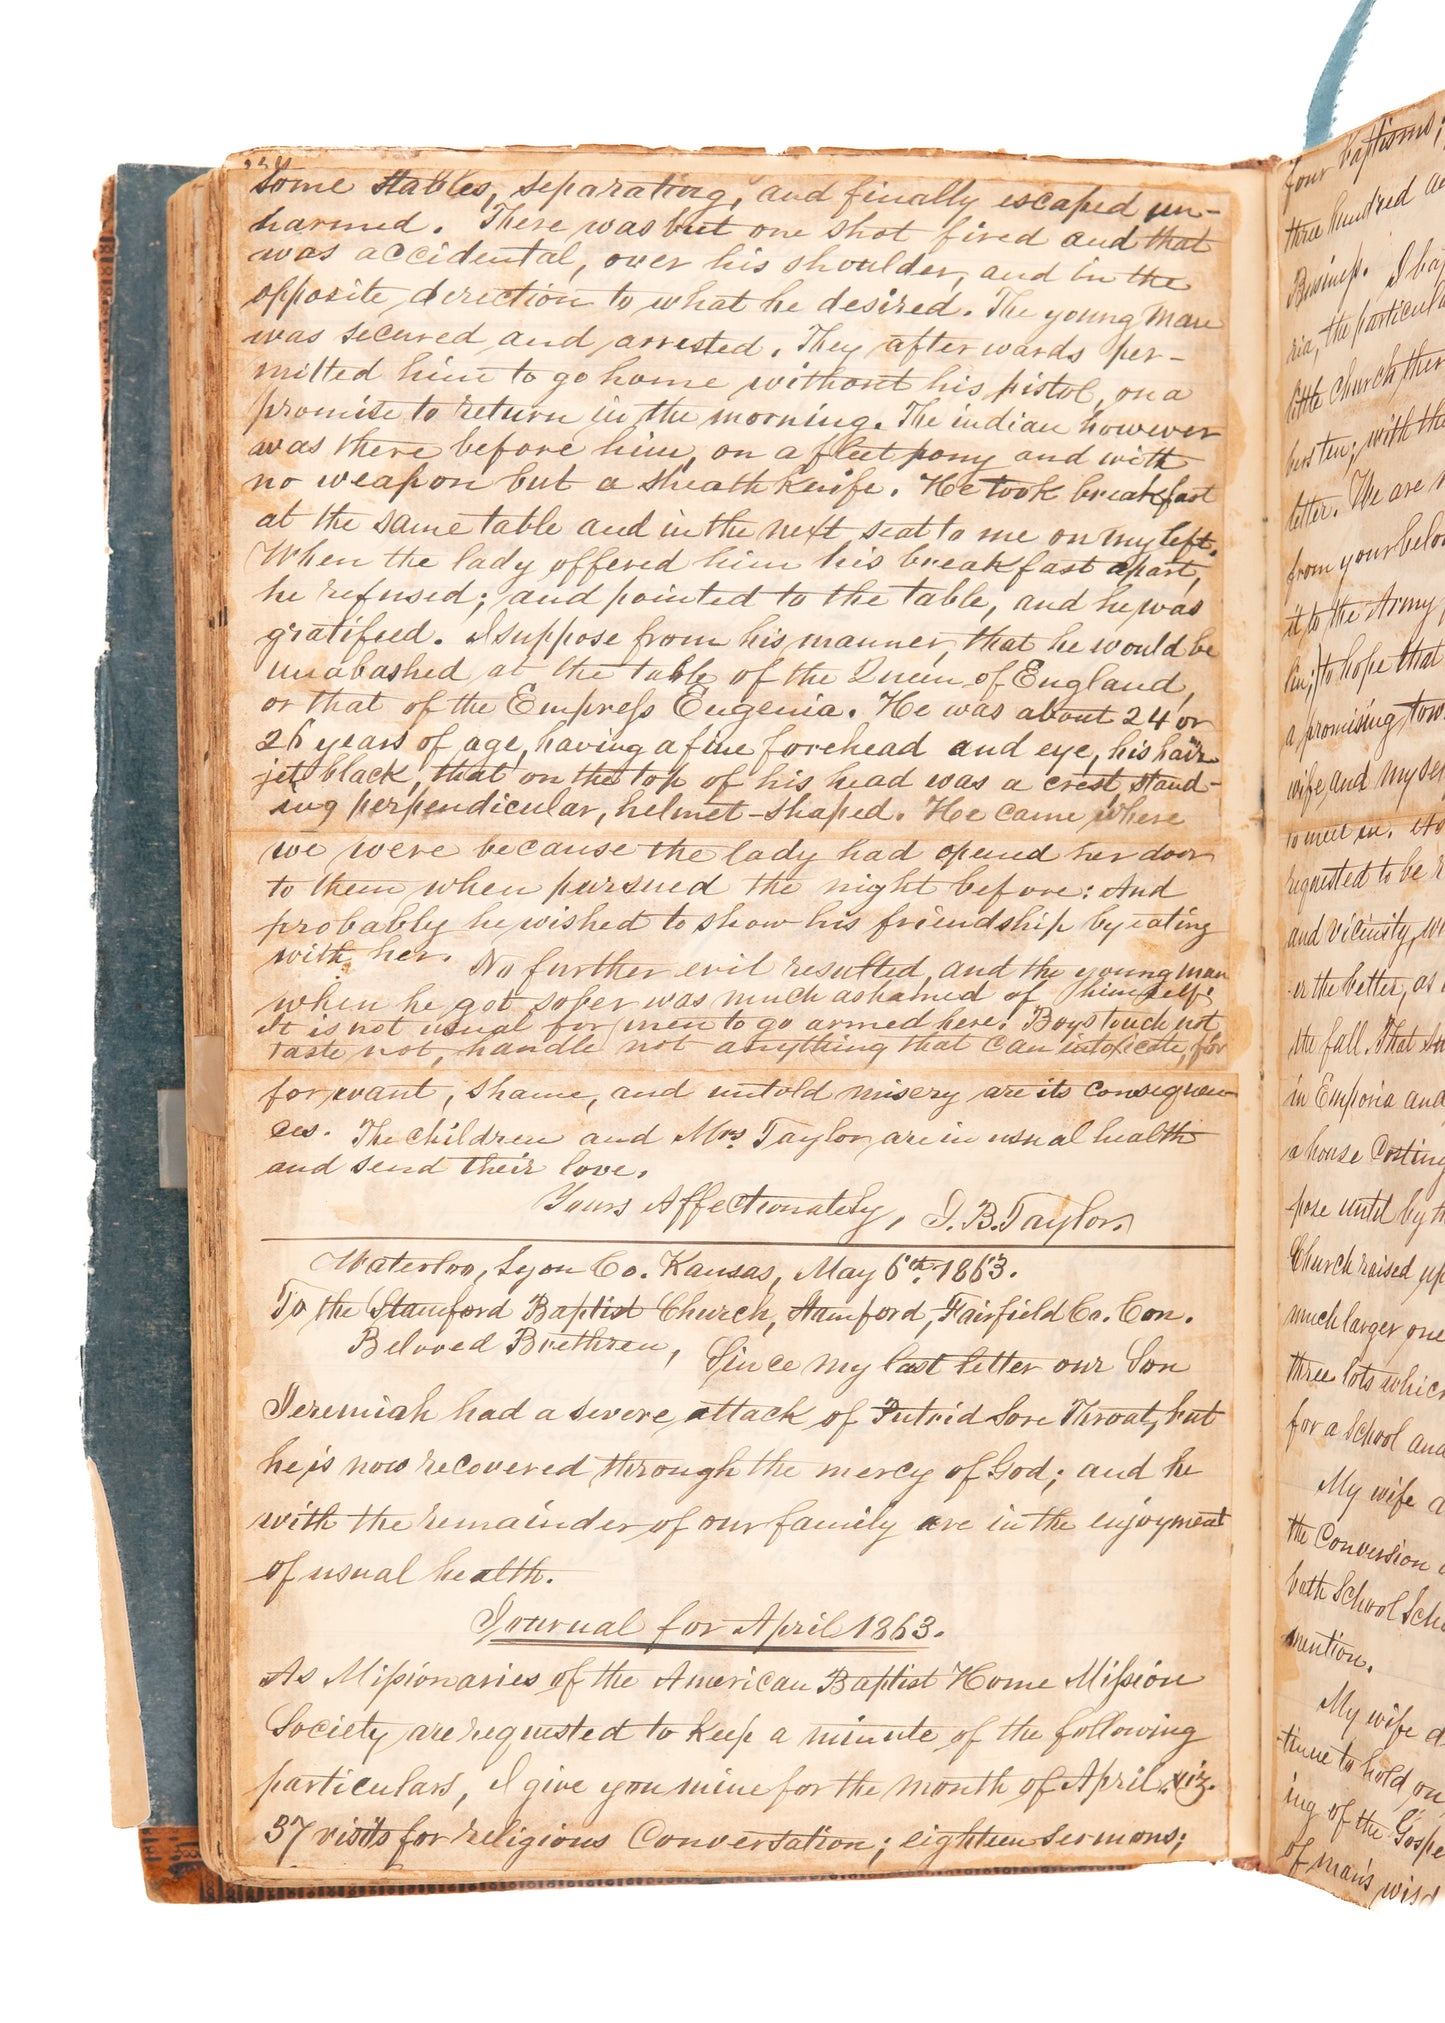 some stables, separating, and finally escaped un-
harmed. There was but one shot fired and that
was accidental, over his shoulder, and in the
opposite direction to what he desired. The young man
was secured and arrested. They afterwards per-
mitted him to go home without his pistol, on a
promise to return in the morning. The indian however
was there before him, on a fleet pony and with
no weapon but a sheath knife. He took breakfast
at the same table and in the next seat to me on my left.
When the lady offered him his breakfast apart,
he refused; and pointed to the table, and he was
gratified. I suppose from his manner, that he would be
unabashed at the table of the Queen of England,
or that of the Empress Eugenia. He was about 24 or
26 years of age, having a fine forehead and eye, his hair
jet black, that on the top of his head was a crest stand-
ing perpendicular, helmet-shaped. He came where
we were because the lady had opened her door
to them when pursued the night before: And
probably he wished to show his friendship by eating
with her. No further evil resulted, and the young man
when he got sober was much ashamed of himself.
It is not usual for men to go armed here. Boys touch not,
taste not, handle not anything that can intoxicate, for
for want, shame, and untold misery are its consequen-
ces. The children and Mrs. Taylor are in usual health
and send their love.
Yours Affectionately, J. B. Taylor.
Waterloo, Lyon Co. Kansas, May 6th. 1863.
To the Stamford Baptist Church, Stamford, Fairfield Co. Con.
Beloved Brethren, Since my last letter our Son
Jeremiah had a severe attack of Putrid Sore Throat, but
he is now recovered through the mercy of God; and he
with the remainder of our family are in the enjoyment
of usual health.
Journal for April 1863.
As Missionaries of the American Baptist Home Mission
Society are requested to keep a minute of the following
particulars, I give you mine for the month of April. viz.
37 visits for religious Conversation; eighteen sermons;
four baptisms;
three hundred
Business. I
ria, the
little Church, ther
bers ten; with the
letter. We are
from your
it to the Army
to hope that
a promising tow
wife and myse
to meet in.
requested to be
and vicinity,
er the better, as
the fall. That
in Emporia and
a house Costing
pose until by
Church raised up
much larger one
three lots which
for a School and
My wife
the Conversion
bath School
mention.
My wife
tinue to hold on
ing of the Gospe
of man's wisd